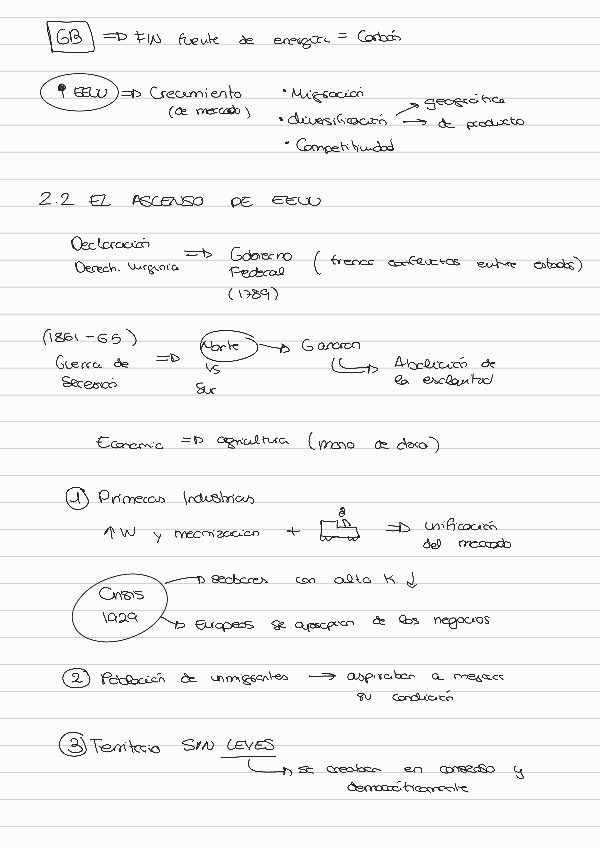 GB ⇒ FIN fuente de energía = Carbón
↑ EEUU ⇒ Crecimiento (de mercado)
• Migración
• diversificación → geográfica
→ de producto
• Competitividad
2.2 EL ASCENSO DE EEUU
Declaración Derech. Virginia ⇒ Gobierno Federal (1789) (frenar conflictos entre estados)
(1861-65) Guerra de Secesión ⇒ Norte vs Sur → Ganaron
→ Abolición de la esclavitud
Economía ⇒ agricultura (mano de obra)
① Primeras Industrias
↑ W y mecnizacion + ⇒ unificación del mercado
Crisis 1929 → sectores con alto K ↓
→ Europeos se apropian de los negocios
② Población de inmigrantes → aspiraban a mejorar su condición
③ Territorio SIN LEYES
→ se creaban en consenso y democráticamente